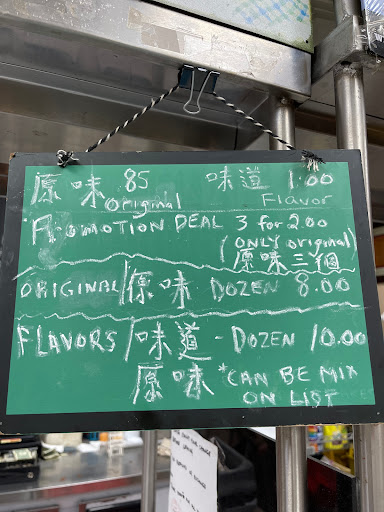 原味 85 味道 1.00
Original Flavor
PROMOTION DEAL 3 for 2.00
(ONLY original)
原味三個
ORIGINAL/原味 DOZEN 8.00
FLAVORS/味道 - DOZEN 10.00
原味 *CAN BE MIX
ON LIST